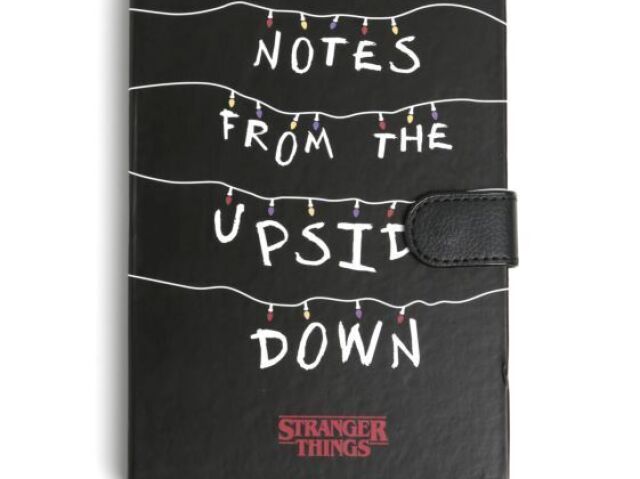 NOTES
FROM THE
UPSID
DOWN
STRANGER
THINGS